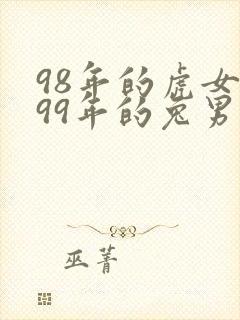 98年的虎女
99年的兔男
巫菁